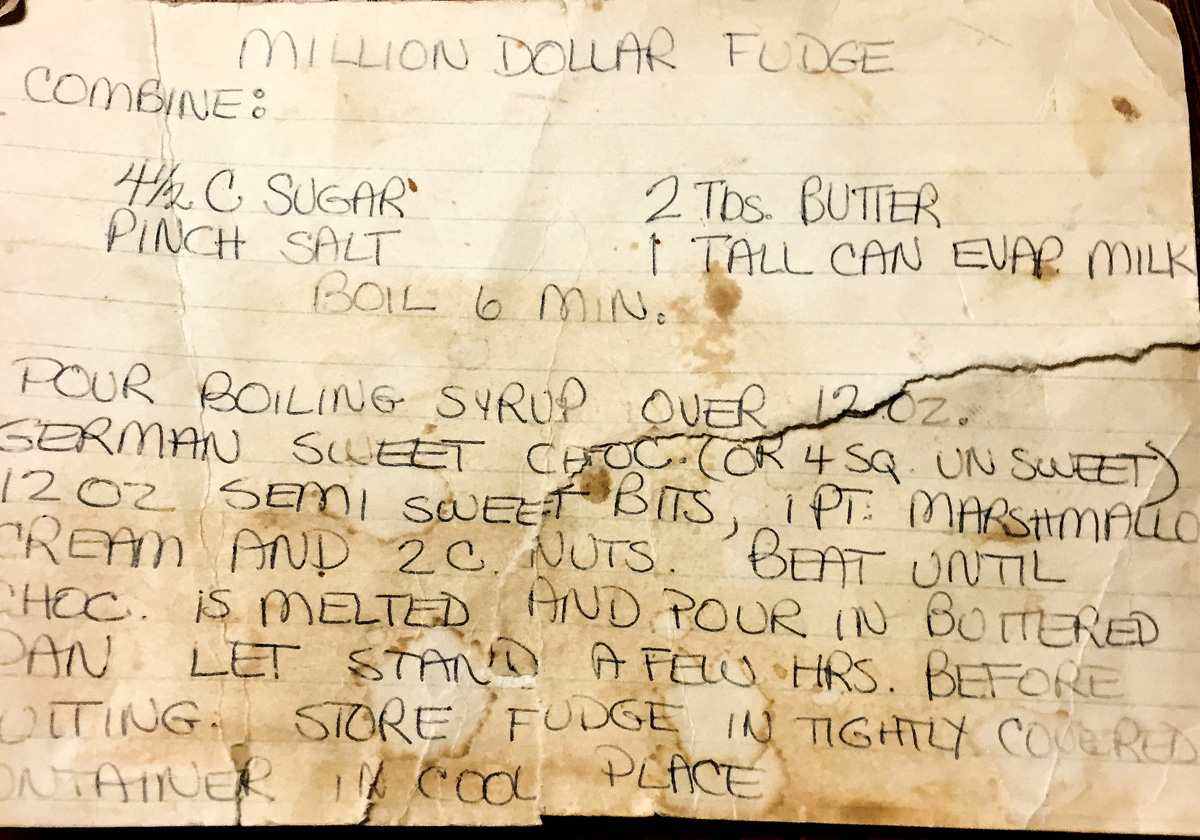 MILLION DOLLAR FUDGE
COMBINE:
4½ C SUGAR 2 Tbs. BUTTER
PINCH SALT 1 TALL CAN EVAP MILK
BOIL 6 MIN.
POUR BOILING SYRUP OVER 12 OZ.
GERMAN SWEET CHOC. (OR 4 SQ. UNSWEET)
12 OZ SEMI SWEET BITS, 1 PT. MARSHMALLO
CREAM AND 2 C. NUTS. BEAT UNTIL
CHOC. IS MELTED AND POUR IN BUTTERED
PAN LET STAND A FEW HRS. BEFORE
CUTTING. STORE FUDGE IN TIGHTLY COVERED
CONTAINER IN COOL PLACE